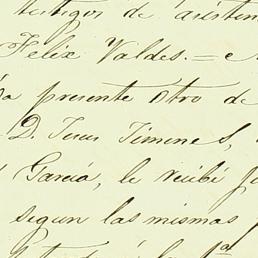 testigos de asisten
Felix Valdes. = e
a presente otro de
D. Jesus Jimenes,
García, le recibí ju
segun las mismas